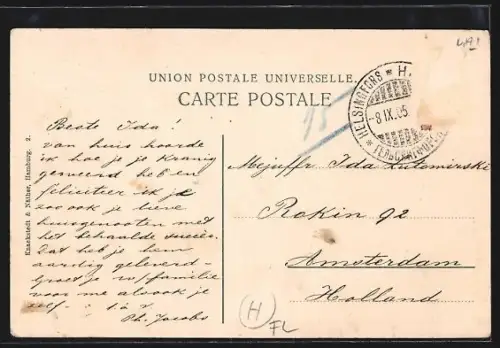 UNION POSTALE UNIVERSELLE.
CARTE POSTALE
HELSINGFORS * H.
-8 IX.05
Knackstedt & Näther, Hamburg. 2.
15
Beste Ida!
van huis hoorde
ik hoe je je kranig
geweerd heb en
feliciteer ik je
zoo ook je lieve
huisgenooten met
het behaalde succes.
Dat heb je hem
aardig geleverd-
Groet je w/familie
voor me alsook je
zelf
Ph. Jacobs
Mejuffr Ida
Rokin 92
Amsterdam
Holland
H
FL